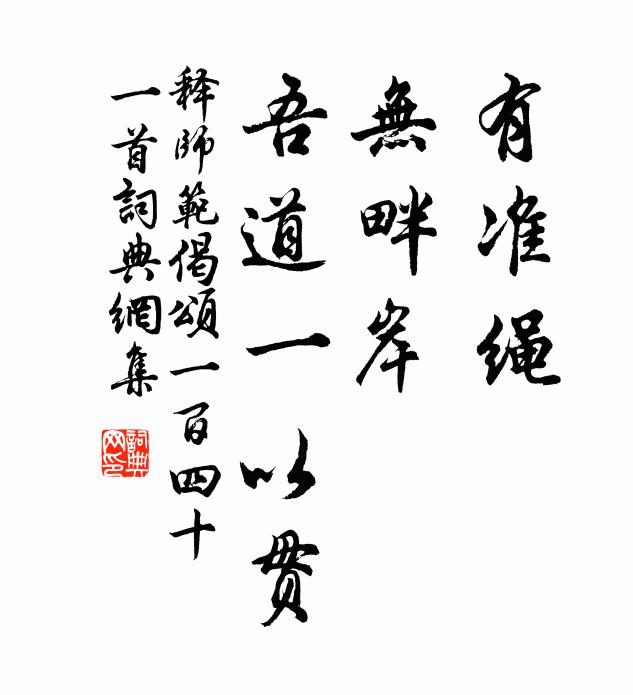 有准绳
無畔岸
吾道一以贯
释師範偈頌一百四十
一首詞典網集
詞典网印